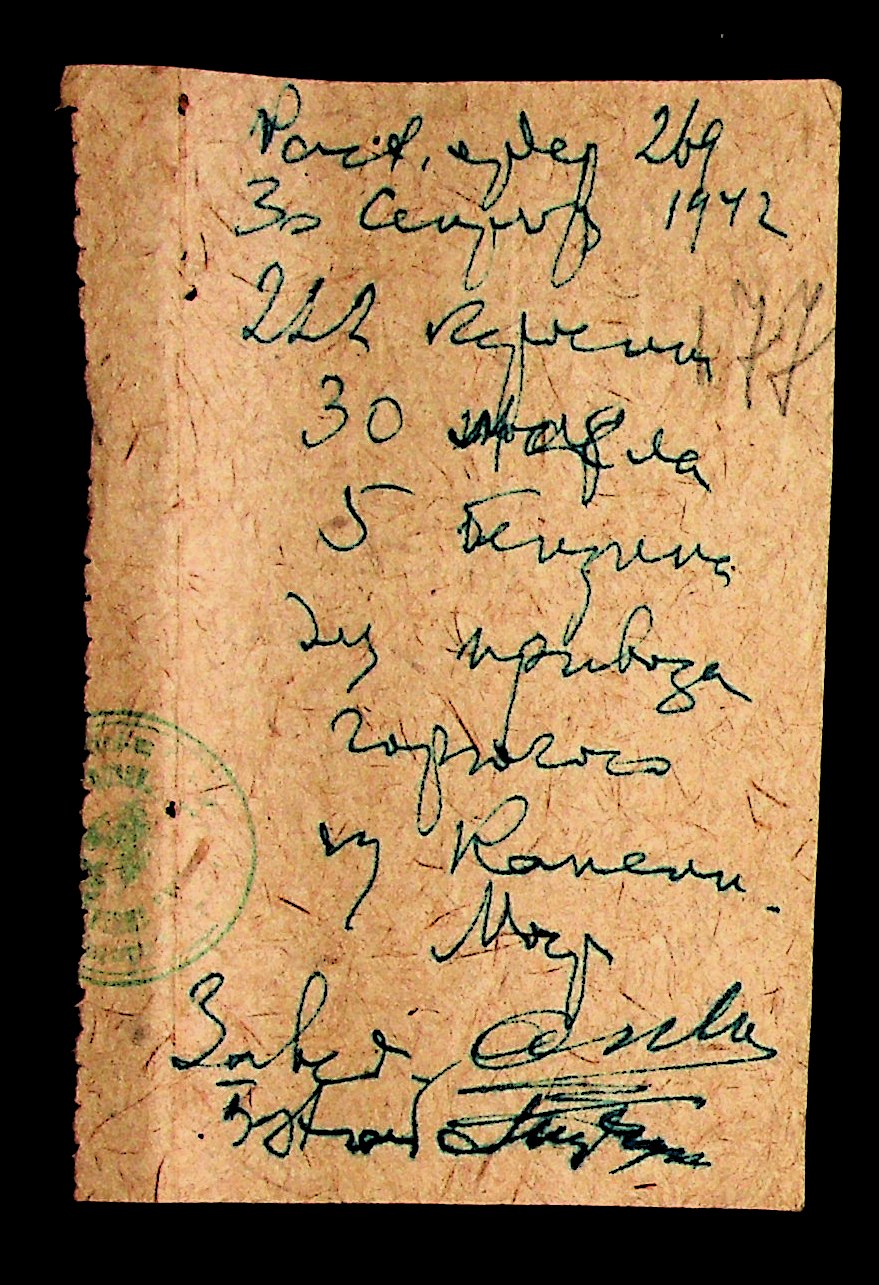 Расх. ордер 269
30 Сентября 1942
222 керосина
30 масла
5 Бензина
за привоза
Горючого
из Камени
177
Мост
Завед.
Бухгалт